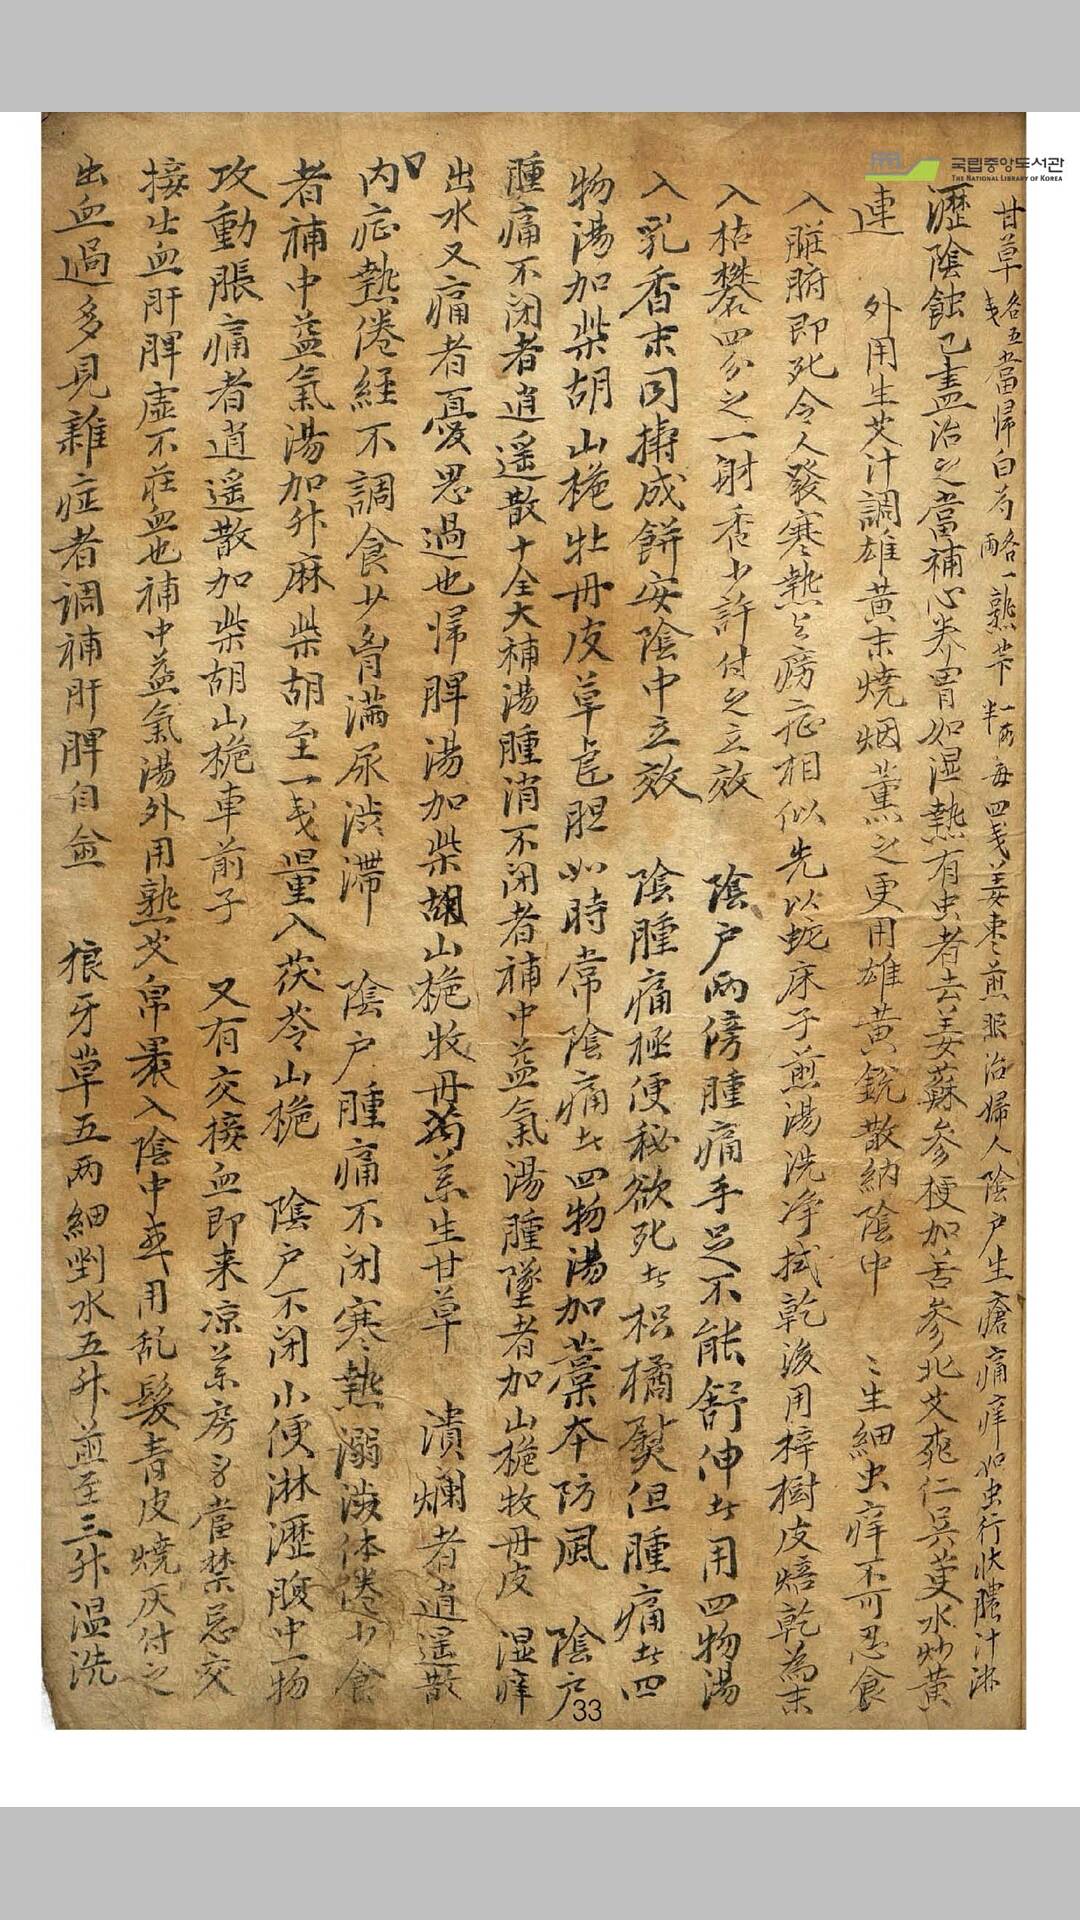 국립중앙도서관
THE NATIONAL LIBRARY OF KOREA
甘草各五戔當帰白芍各一兩熟芐一兩半每四戔姜枣煎服治婦人陰戶生瘡痛痒如虫行状膿汁淋
瀝陰蝕已盡治之當補心养胃如湿熱有虫者去姜蘇参梗加苦参北艾桃仁吳萸水炒黃
連　外用生艾汁調雄黃末燒烟薰之更用雄黃銳散納陰中　〻生細虫痒不可忍食
入脏腑即死令人發寒熱与癆症相似先以蛇床子煎湯洗净拭乾後用梓樹皮焙乾為末
入枯礬四分之一射香少許付之立效　陰戶兩傍腫痛手足不能舒伸者用四物湯
入乳香末同搗成餅安陰中立效　陰腫痛極便秘欲死者枳橘熨但腫痛者四
物湯加柴胡山梔牡丹皮草龍胆如時常陰痛者四物湯加藁本防風　陰戶
腫痛不闭者逍遥散十全大補湯腫消不闭者補中益氣湯腫墜者加山梔牧丹皮　湿痒
出水又痛者憂思過也帰脾湯加柴胡山梔牧丹芍药生甘草　潰爛者逍遥散
内症熱倦経不調食少胷滿尿渋滞　陰戶腫痛不闭寒熱溺渋体倦少食
者補中益氣湯加升麻柴胡至一戔量入茯苓山梔　陰戶不闭小便淋瀝腹中一物
攻動脹痛者逍遥散加柴胡山梔車前子　又有交接血即来凉药房事當禁忌交
接出血肝脾虛不莊血也補中益氣湯外用熟艾帛裹入陰中率用乱髮青皮燒灰付之
出血過多見雜症者調補肝脾自金　狼牙草五两細剉水五升煎至三升温洗
33